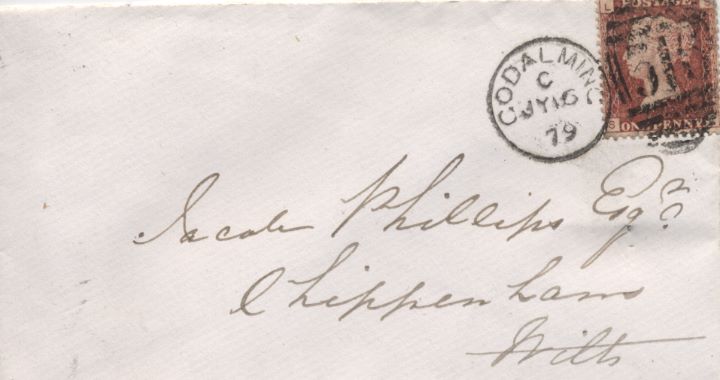 L POSTAGE
S ONE PENNY
GODALMING
C
JY 16
79
Jacob Phillips Esqr
Chippenham
Wilts